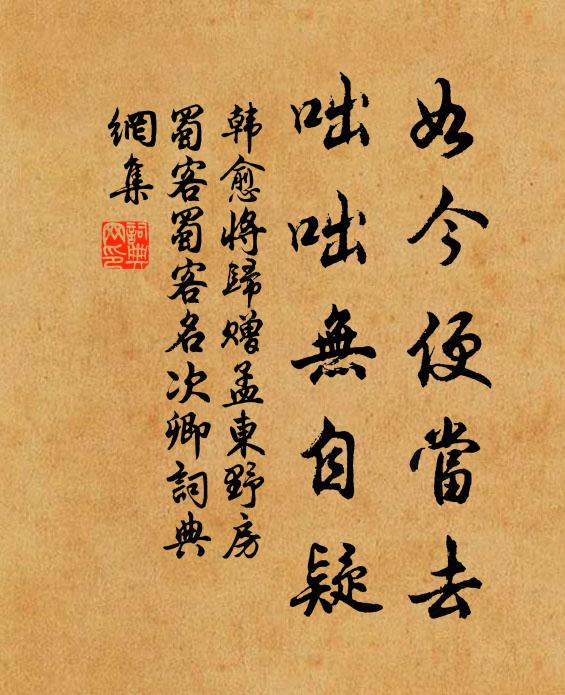 如今便當去
咄咄無自疑
韩愈將歸赠孟東野房
蜀客蜀客名次卿詞典
網集
詞典
网印